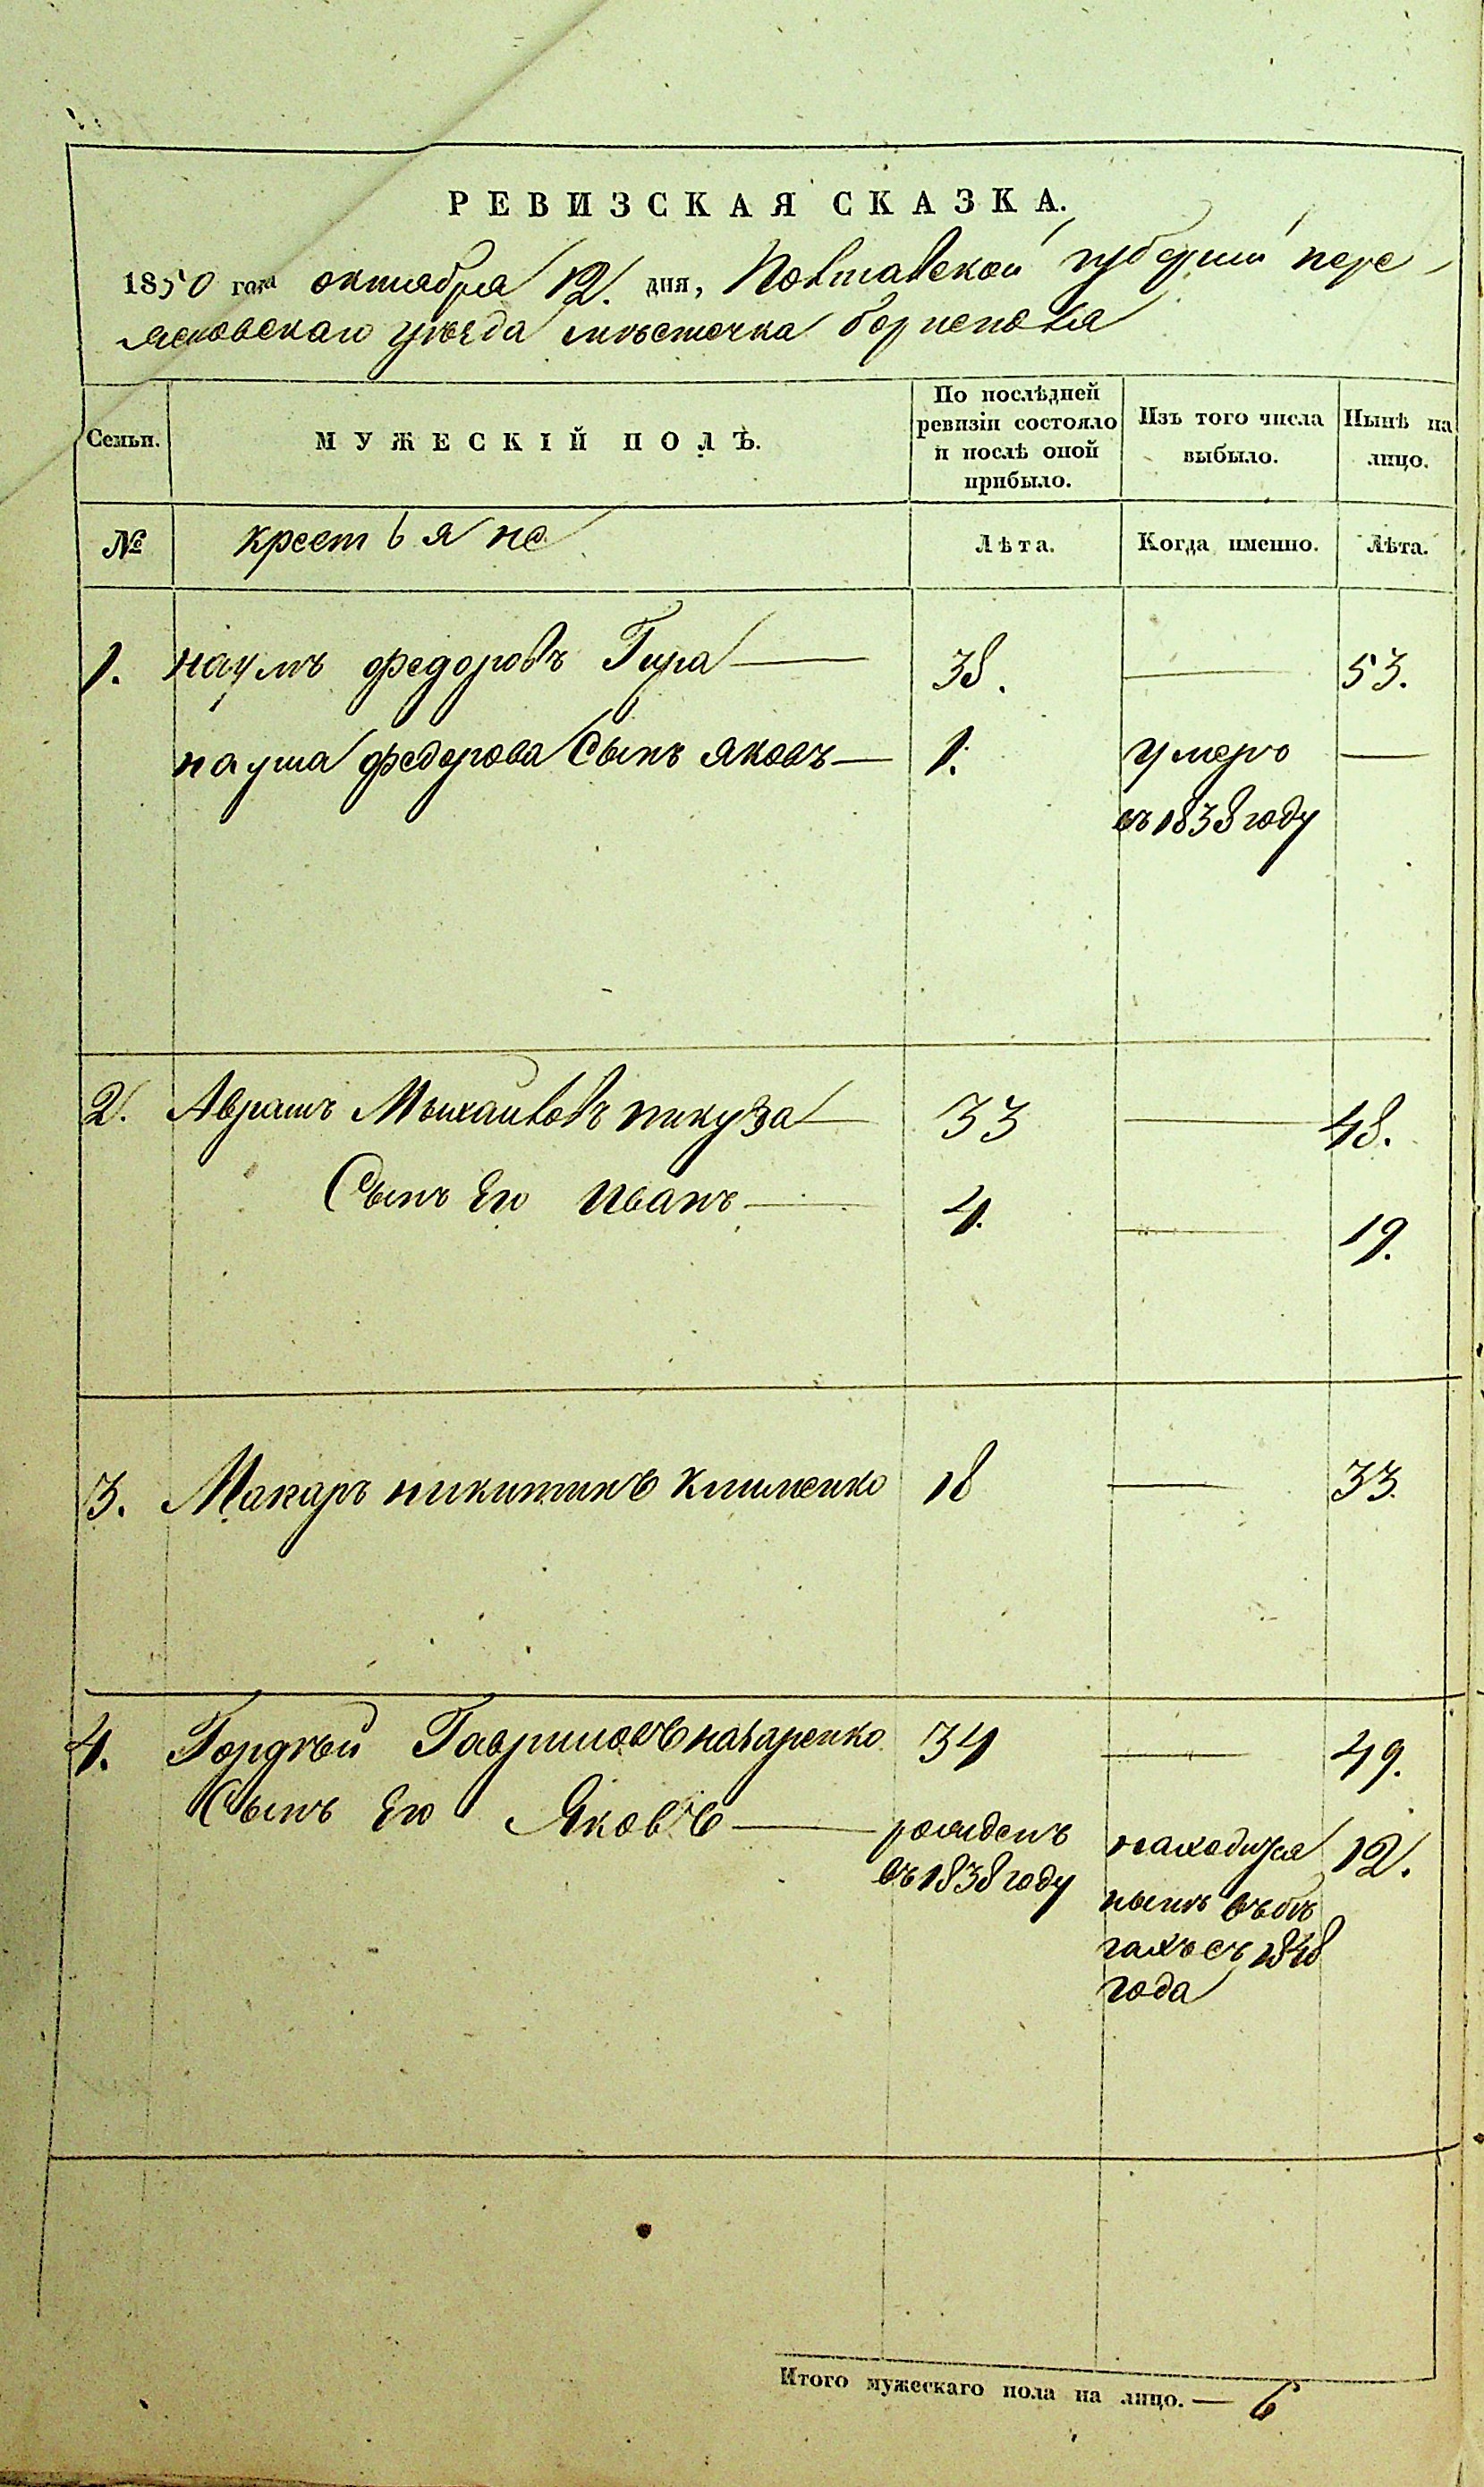 РЕВИЗСКАЯ СКАЗКА.
1850 года октября 12. дня, Полтавской губернии пере
яславскаго уѣзда мѣстечка борисполя
Семьи.
МУЖЕСКІЙ ПОЛЪ.
По послѣдней
ревизіи состояло
и послѣ оной
прибыло.
Изъ того числа
выбыло.
Нынѣ на
лицо.
№ крестьяне Лѣта. Когда именно. Лѣта.
1. наумъ федоровъ Гира — 38. — 53.
наума федорова Сынъ яковъ — 1. умеръ —
въ 1838 году
2. Аврамъ Михайловъ пикуза — 33 — 48.
Сынъ Его иванъ — 4. — 19.
3. Макаръ никитинъ клименко 18 — 33.
4. Гордѣй Гавриловъ назаренко 34 — 49.
Сынъ Его Яковъ — рожденъ находится 12.
въ 1838 году
нынѣ въ бѣ
гахъ съ 1848
года
Итого мужескаго пола на лицо. — 6